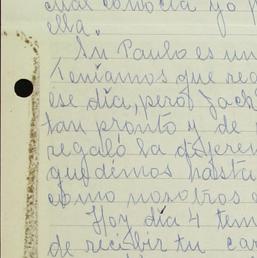 conocía yo
ella.
Sn Paulo es un
Teníamos que re
ese día, pero Jack
tan pronto y de
regaló la diferen
quedémos hasta
como nosotros
Hoy día 4 tem
de recibir tu car